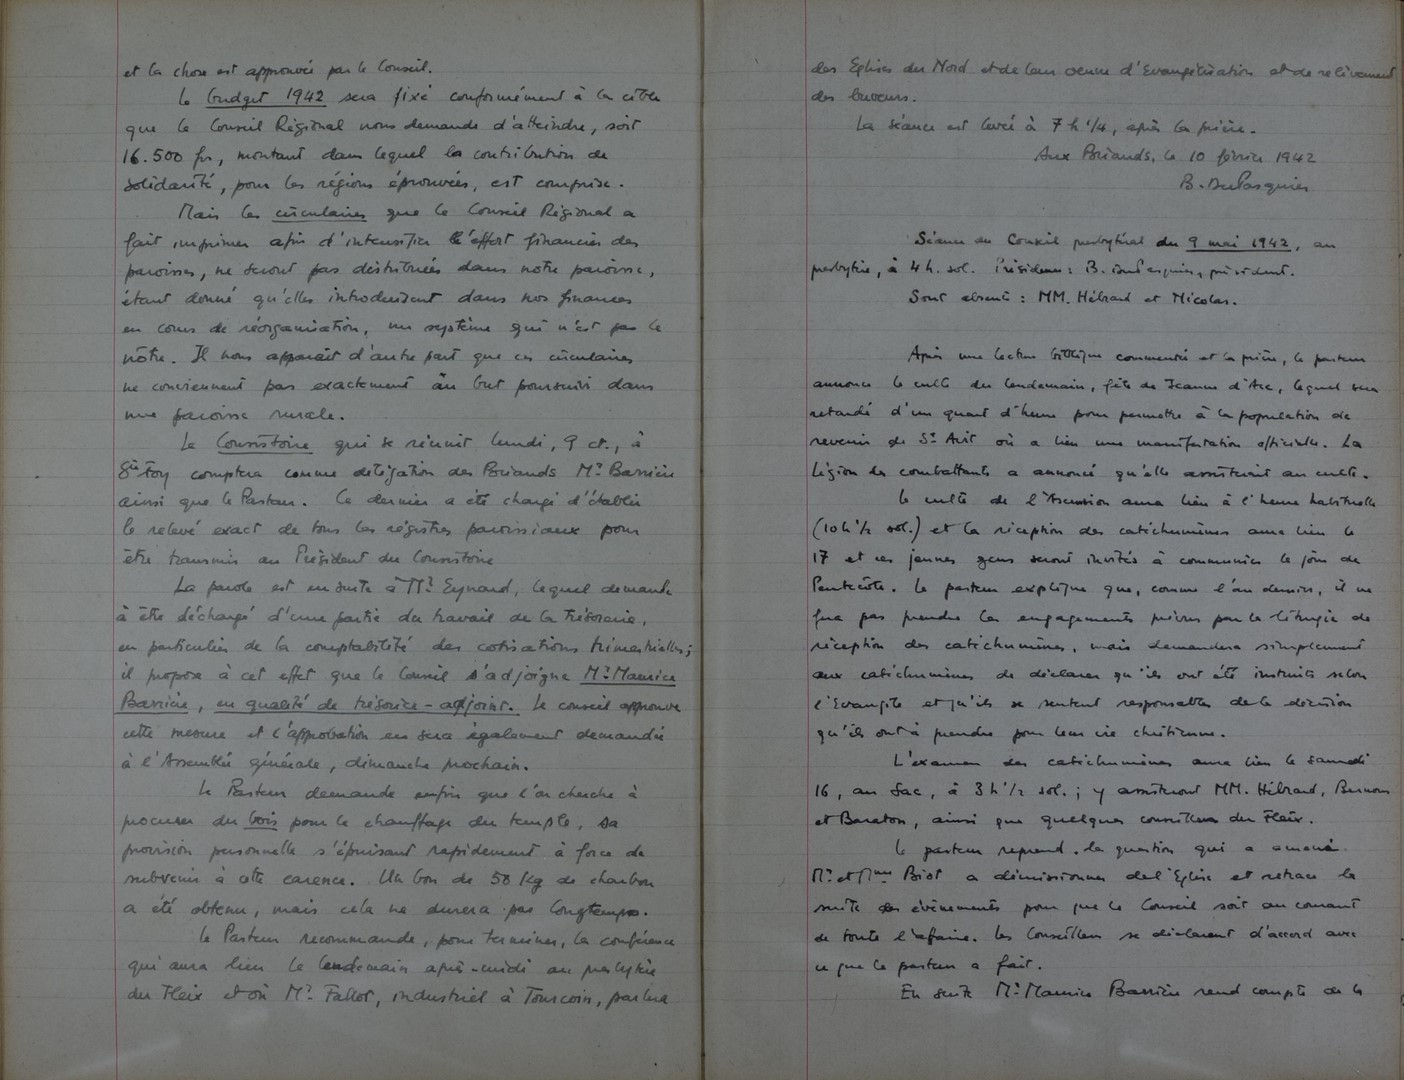 et la chose est approuvée par le Conseil.
Le budget 1942 sera fixé conformément à la cible
que le Conseil Régional nous demande d'atteindre, soit
16.500 frs, montant dans lequel la contribution de
solidarité, pour les régions éprouvées, est comprise.
Mais les circulaires que le Conseil Régional a
fait imprimer afin d'intensifier l'effort financier des
paroisses, ne seront pas distribuées dans notre paroisse,
étant donné qu'elles introduiraient dans nos finances
en cours de réorganisation, un système qui n'est pas le
nôtre. Il nous apparaît d'autre part que ces circulaires
ne conviennent pas exactement au but poursuivi dans
une paroisse rurale.
Le Consistoire qui se réunit lundi, 9 ct., à
Ste Foy comptera comme délégation des Briands Mr. Barrière
ainsi que le Pasteur. Ce dernier a été chargé d'établir
le relevé exact de tous les régistres paroissiaux pour
être transmis au Président du Consistoire
La parole est ensuite à Mr. Eynard, lequel demande
à être déchargé d'une partie du travail de la trésorerie,
en particulier de la comptabilité des cotisations trimestrielles;
il propose à cet effet que le Conseil s'adjoigne Mr. Maurice
Barrière, en qualité de trésorier-adjoint. Le conseil approuve
cette mesure et l'approbation en sera également demandée
à l'Assemblée générale, dimanche prochain.
Le Pasteur demande enfin que l'on cherche à
procurer du bois pour le chauffage du temple, sa
provision personnelle s'épuisant rapidement à force de
subvenir à cette carence. Un bon de 50 Kg de charbon
a été obtenu, mais cela ne durera pas longtemps.
Le Pasteur recommande, pour terminer, la conférence
qui aura lieu le lendemain après-midi au presbytère
du Fleix et où Mr. Fallot, industriel à Tourcoin, parlera
des Eglises du Nord et de leur oeuvre d'Evangélisation et de relèvement
des buveurs.
La séance est levée à 7 h 1/4, après la prière.
Aux Briands, le 10 février 1942
B. DuPasquier
Séance du Conseil presbytéral du 9 mai 1942, au
presbytère, à 4 h. sol. Présidence: B. DuPasquier, président.
Sont absents: MM. Hébrard et Nicolas.
Après une lecture biblique commentée et la prière, le pasteur
annonce le culte du lendemain, fête de Jeanne d'Arc, lequel sera
retardé d'un quart d'heure pour permettre à la population de
revenir de St Avit où a lieu une manifestation officielle. La
Légion des combattants a annoncé qu'elle assisterait au culte.
Le culte de l'Ascension aura lieu à l'heure habituelle
(10 h 1/2 sol.) et la réception des catéchumènes aura lieu le
17 et ces jeunes gens seront invités à communier le jour de
Pentecôte. Le pasteur explique que, comme l'an dernier, il ne
fera pas prendre les engagements prévus par la liturgie de
réception des catéchumènes, mais demandera simplement
aux catéchumènes de déclarer qu'ils ont été instruits selon
l'Evangile et qu'ils se sentent responsables de la décision
qu'ils ont à prendre pour leur vie chrétienne.
L'examen des catéchumènes aura lieu le samedi
16, au Sac, à 3 h 1/2 sol.; y assisteront MM. Hébrard,
et Baraton, ainsi que quelques conseillers du Fleix.
Le pasteur reprend la question qui a amené
Mr. et Mme Biot a démissionner de l'Eglise et retrace la
suite des évènements pour que le Conseil soit au courant
de toute l'affaire. Les Conseillers se déclarent d'accord avec
ce que le pasteur a fait.
En suite Mr. Maurice Barrière rend compte de la